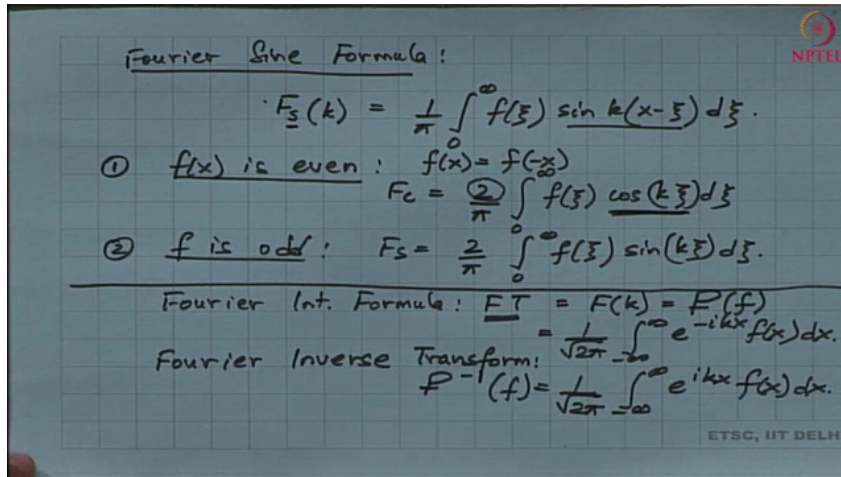 Fourier Sine Formula :
NPTEL
F_s(k) = 1/π ∫_0^∞ f(ξ) sin k(x-ξ) dξ.
① f(x) is even : f(x) = f(-x)
F_c = 2/π ∫_0^∞ f(ξ) cos(kξ) dξ
② f is odd : F_s = 2/π ∫_0^∞ f(ξ) sin(kξ) dξ.
Fourier Int. Formula : FT = F(k) = F(f)
= 1/√2π ∫_-∞^∞ e^-ikx f(x) dx.
Fourier Inverse Transform:
F^-1(f) = 1/√2π ∫_-∞^∞ e^ikx f(x) dx.
ETSC, IIT DELH